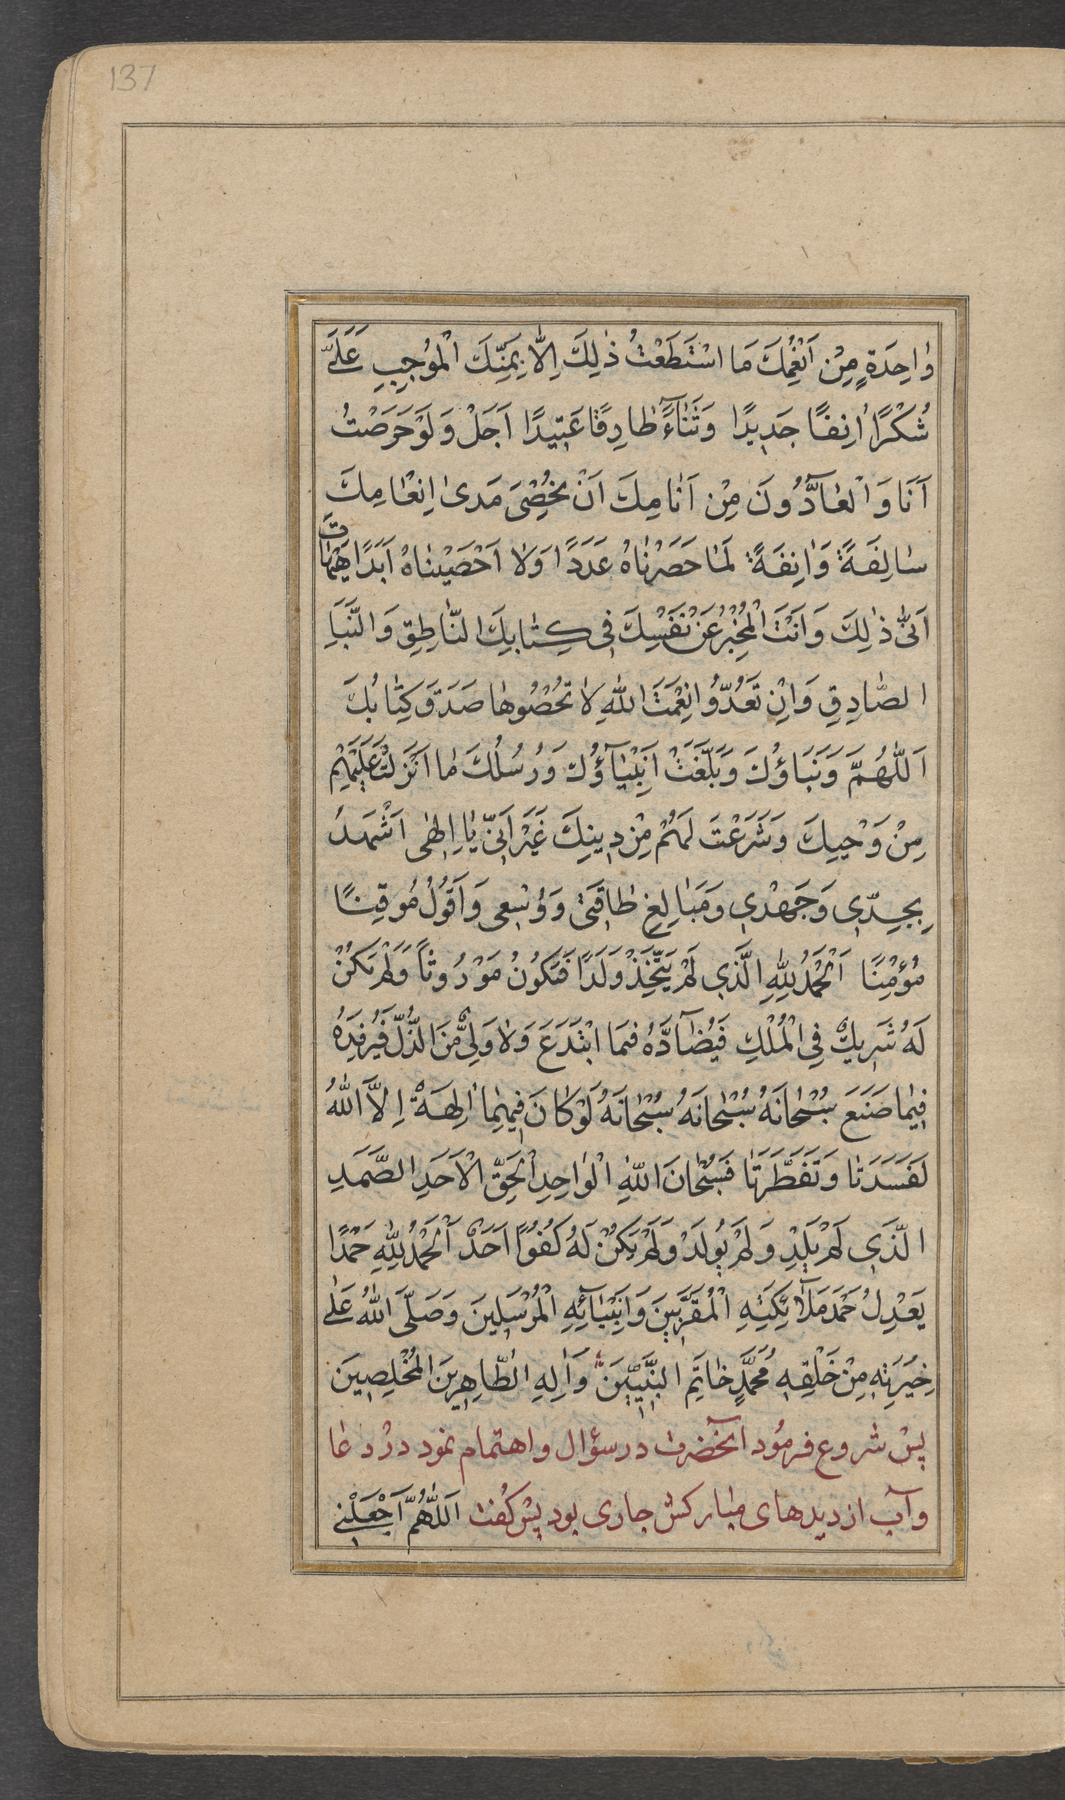 137
وٰاحِدَةٍ مِنْ اَنْعُمِكَ مَا اسْتَطَعْتُ ذٰلِكَ اِلّٰا بِمَنِّكَ الْمُوْجِبِ عَلَيَّ
شُكْرًا اٰنِفًا جَدِيدًا وَثَنٰاۤءً طٰارِقًا عَتِيدًا اَجَلْ وَلَوْ حَرَصْتُ
اَنَا وَالْعٰادُّونَ مِنْ اَنٰامِكَ اَنْ نُحْصِىَ مَدىٰ اِنْعٰامِكَ
سٰالِفَةً وَاٰنِفَةً لَمٰا حَصَرْنٰاهُ عَدَدًا وَلٰا اَحْصَيْنٰاهُ اَبَدًا هَيْهٰاتَ
اَنّٰى ذٰلِكَ وَاَنْتَ الْمُخْبِرُ عَنْ نَفْسِكَ فِى كِتٰابِكَ النّٰاطِقِ وَالنَّبَاِ
الصّٰادِقِ وَاِنْ تَعُدُّوْا نِعْمَتَ اللهِ لٰا تُحْصُوهٰا صَدَقَ كِتٰابُكَ
اَللّٰهُمَّ وَنَبَاؤُكَ وَبَلَّغَتْ اَنْبِيٰاۤؤُكَ وَرُسُلُكَ مٰا اَنْزَلْتَ عَلَيْهِمْ
مِنْ وَحْيِكَ وَشَرَعْتَ لَهُمْ مِنْ دِينِكَ غَيْرَ اَنّى يٰا اِلٰهى اَشْهَدُ
بِجِدّى وَجَهْدِى وَمَبٰالِغِ طٰاقَتى وَوُسْعى وَاَقُولُ مُوقِنًا
مُؤْمِنًا اَلْحَمْدُ لِلّٰهِ الَّذِى لَمْ يَتَّخِذْ وَلَدًا فَيَكُونُ مَوْرُوثًا وَلَمْ يَكُنْ
لَهُ شَرِيكٌ فِى الْمُلْكِ فَيُضٰاۤدَّهُ فيمَا ابْتَدَعَ وَلٰا وَلِىٌّ مِنَ الذُّلِّ فَيُرْفِدَهُ
فِيمٰا صَنَعَ سُبْحٰانَهُ سُبْحٰانَهُ سُبْحٰانَهُ لَوْ كٰانَ فِيهِمٰا اٰلِهَةٌ اِلَّا اللهُ
لَفَسَدَتٰا وَتَفَطَّرَتٰا فَسُبْحٰانَ اللهِ الْوٰاحِدِ الْحَقِّ الْاَحَدِ الصَّمَدِ
الَّذِى لَمْ يَلِدْ وَلَمْ يُولَدْ وَلَمْ يَكُنْ لَهُ كُفُوًا اَحَدٌ اَلْحَمْدُ لِلّٰهِ حَمْدًا
يَعْدِلُ حَمْدَ مَلٰاۤئِكَتِهِ الْمُقَرَّبِينَ وَاَنْبِيٰاۤئِهِ الْمُرْسَلِينَ وَصَلَّى اللهُ عَلٰى
خِيَرَتِهِ مِنْ خَلْقِهِ مُحَمَّدٍ خٰاتَمِ النَّبِيّينَ وَاٰلِهِ الطّٰاهِرِينَ الْمُخْلِصِينَ
پس شروع فرمُود انحضرت در سؤال و اهتمام نمود در دعا
وآب از دیدهای مبارکش جاری بود پس کفت اَللّٰهُمَّ اجْعَلْنى